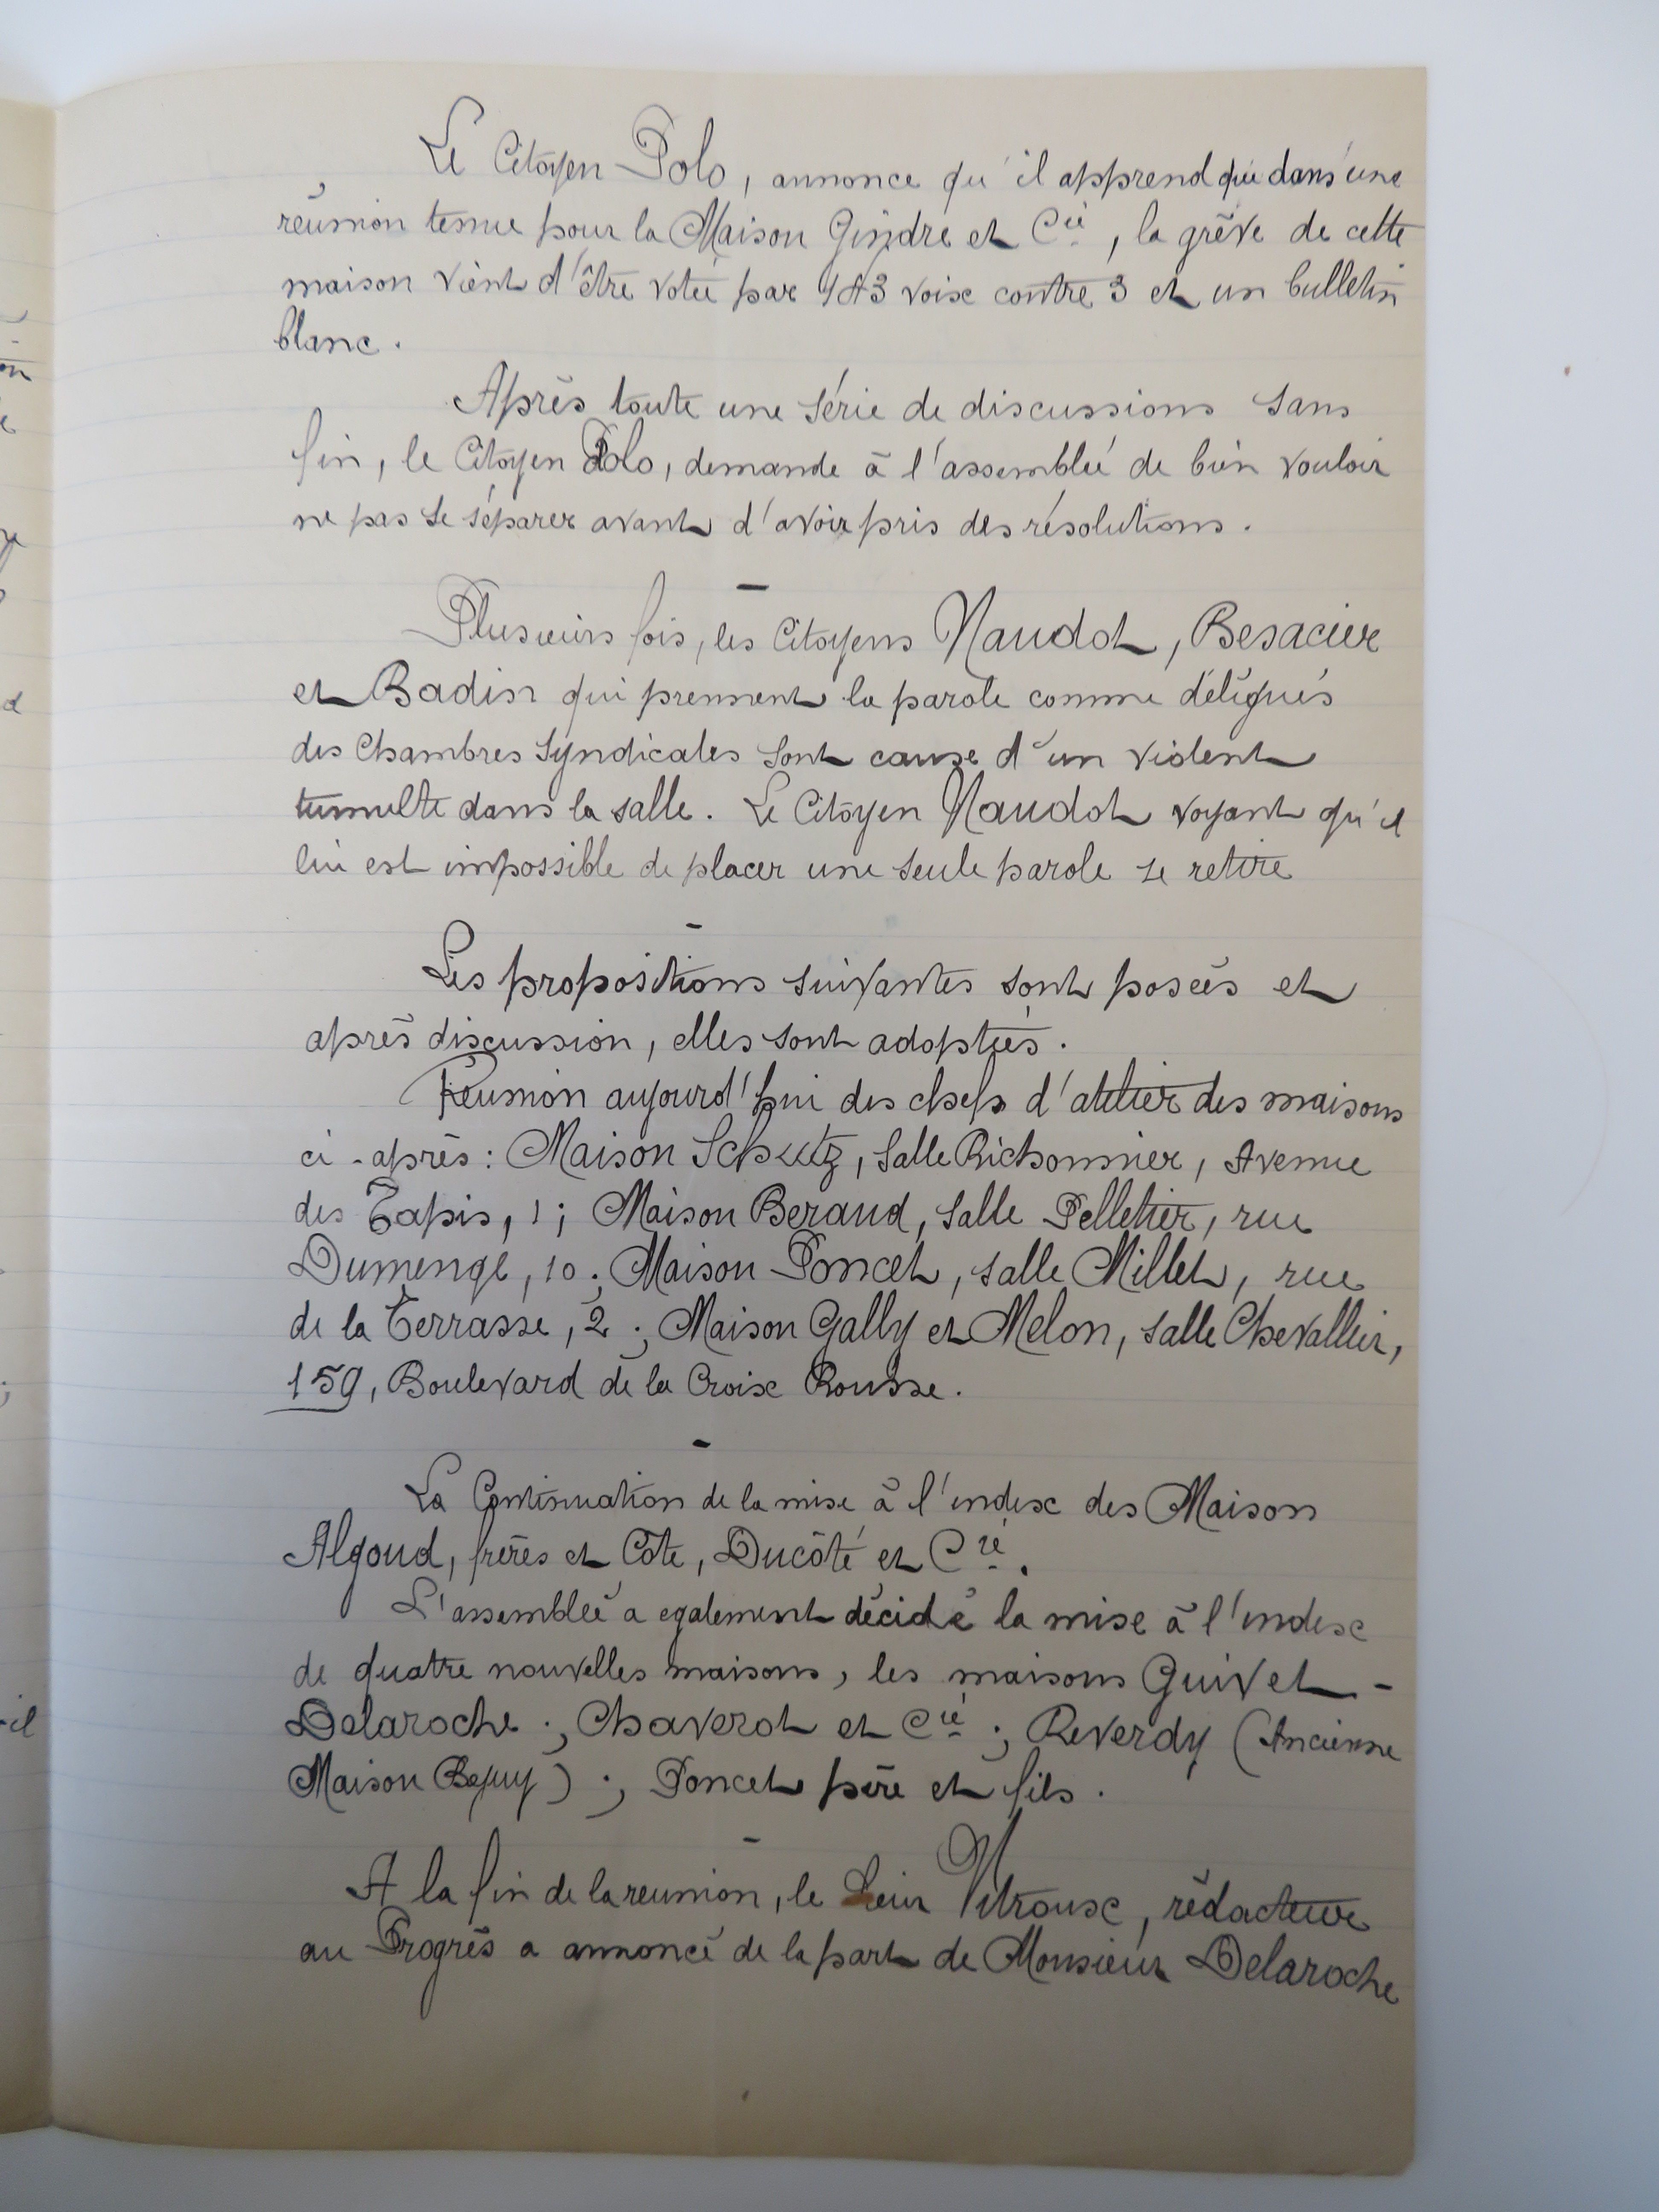 Le Citoyen Polo, annonce qu'il apprend que dans une
réunion tenue pour la Maison Gindre et Cie, la grève de cette
maison vient d'être votée par 143 voix contre 3 et un bulletin
blanc.
Après toute une série de discussions sans
fin, le Citoyen Polo, demande à l'assemblée de bien vouloir
ne pas se séparer avant d'avoir pris des résolutions.
Plusieurs fois, les Citoyens Naudot, Besacier
et Badin qui prennent la parole comme délégués
des Chambres Syndicales sont cause d'un violent
tumulte dans la salle. Le Citoyen Naudot voyant qu'il
lui est impossible de placer une seule parole se retire
Les propositions suivantes sont posées et
après discussion, elles sont adoptées.
Réunion aujourd'hui des chefs d'atelier des maisons
ci-après : Maison Schutz, Salle Richonnier, Avenue
des Tapis, 1 ; Maison Beraud, Salle Pelletier, rue
Dumenge, 10 ; Maison Poncet, salle Millet, rue
de la Terrasse, 2 ; Maison Gally et Melon, salle Chevallier,
159, Boulevard de la Croix Rousse.
La Continuation de la mise à l'index des Maison
Algoud, frères et Côte, Ducôté et Cie.
L'assemblée a egalement décidé la mise à l'index
de quatre nouvelles maisons, les maisons Guivet-
Delaroche ; Chaverot et Cie ; Reverdy (Ancienne
Maison ) ; Poncet père et fils.
A la fin de la reunion, le Vitroux, rédacteur
au Progrès a annoncé de la part de Monsieur Delaroche